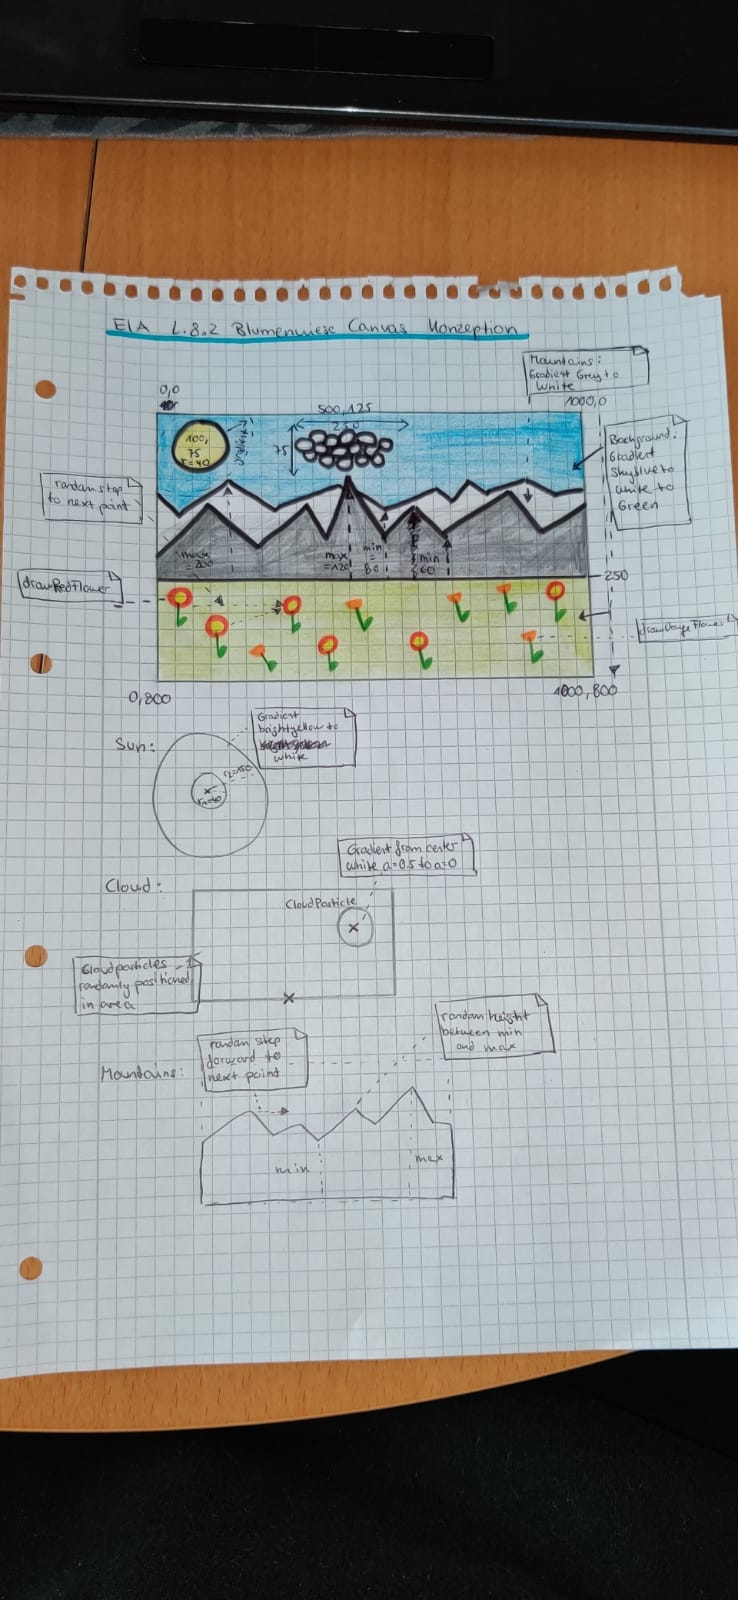 EIA L.8.2 Blumenwiese Canvas Konzeption
Mountains:
Gradient Grey to
White
0,0
500,125
1000,0
250
75
100,
75
r=40
Background:
Gradient
Skyblue to
white to
Green
random step
to next point
max
=200
max
=120
min
=
80
min
=60
250
drawRedFlower
0,800
1000,800
Sun:
Gradient
brightyellow to
white
r2=150
r1=40
Gradient from center
white a=0.5 to a=0
Cloud:
CloudParticle
Cloudparticles
randomly positioned
in area
random height
between min
and max
random step
forward to
next point
Mountains:
min
max